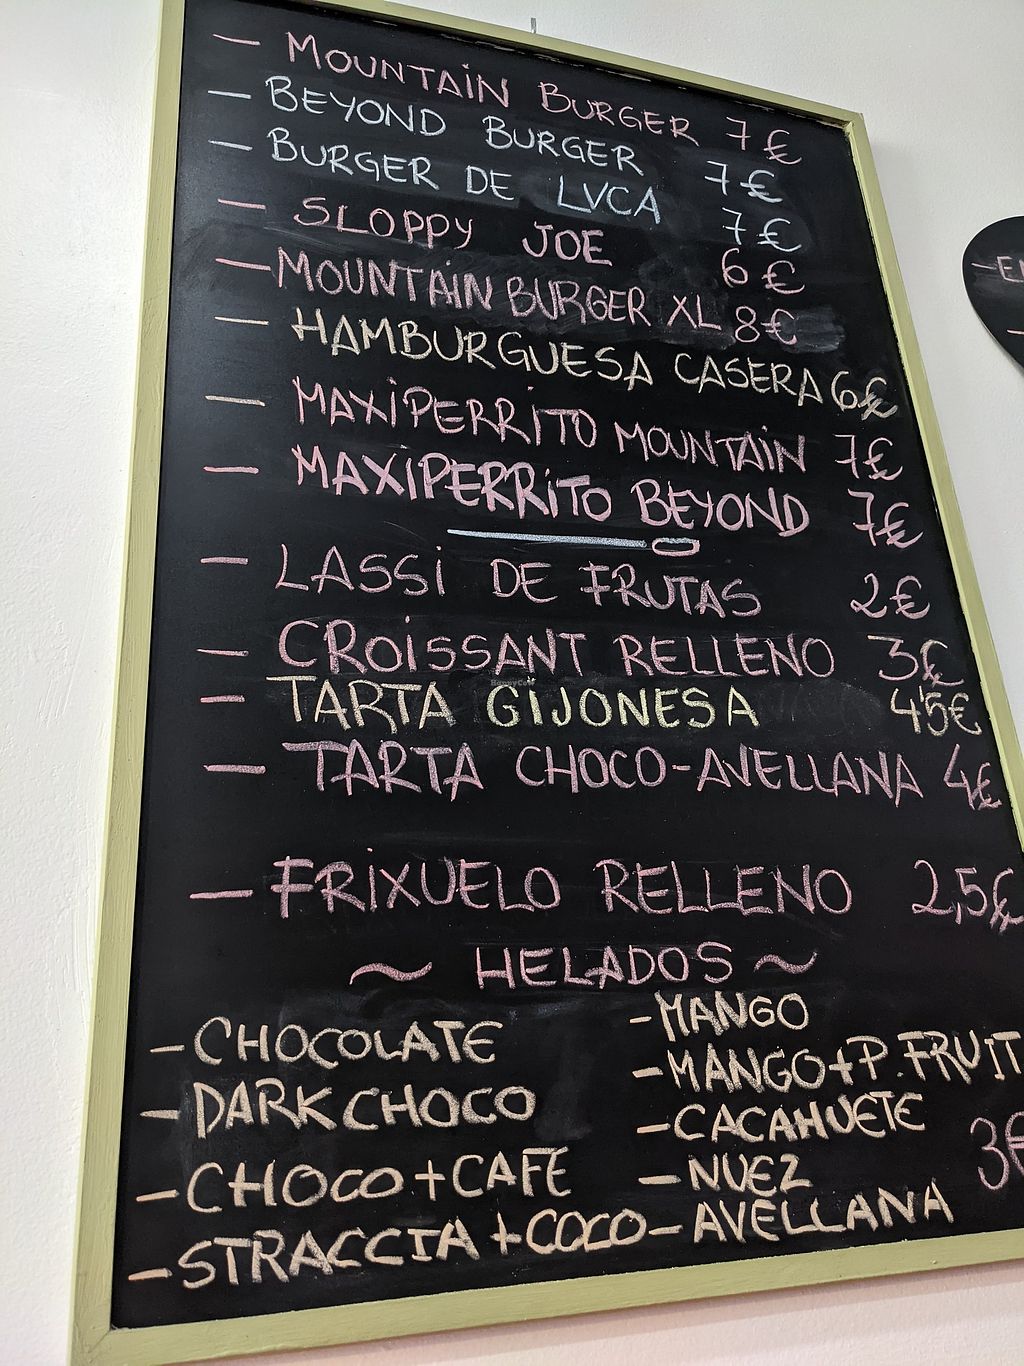 — MOUNTAIN BURGER 7 €
— BEYOND BURGER 7 €
— BURGER DE LVCA 7 €
— SLOPPY JOE 6 €
— MOUNTAIN BURGER XL 8€
— HAMBURGUESA CASERA 6€
— MAXIPERRITO MOUNTAIN 7€
— MAXIPERRITO BEYOND 7€
— LASSI DE FRUTAS 2€
— CROISSANT RELLENO 3€
— TARTA GIJONESA 4'5€
— TARTA CHOCO-AVELLANA 4€
— FRIXUELO RELLENO 2,5€
~ HELADOS ~
—CHOCOLATE
—DARK CHOCO
—CHOCO+CAFE
—STRACCIA+COCO
—MANGO
—MANGO+P.FRUIT
—CACAHUETE
—NUEZ
—AVELLANA
3€
—E
HappyCow